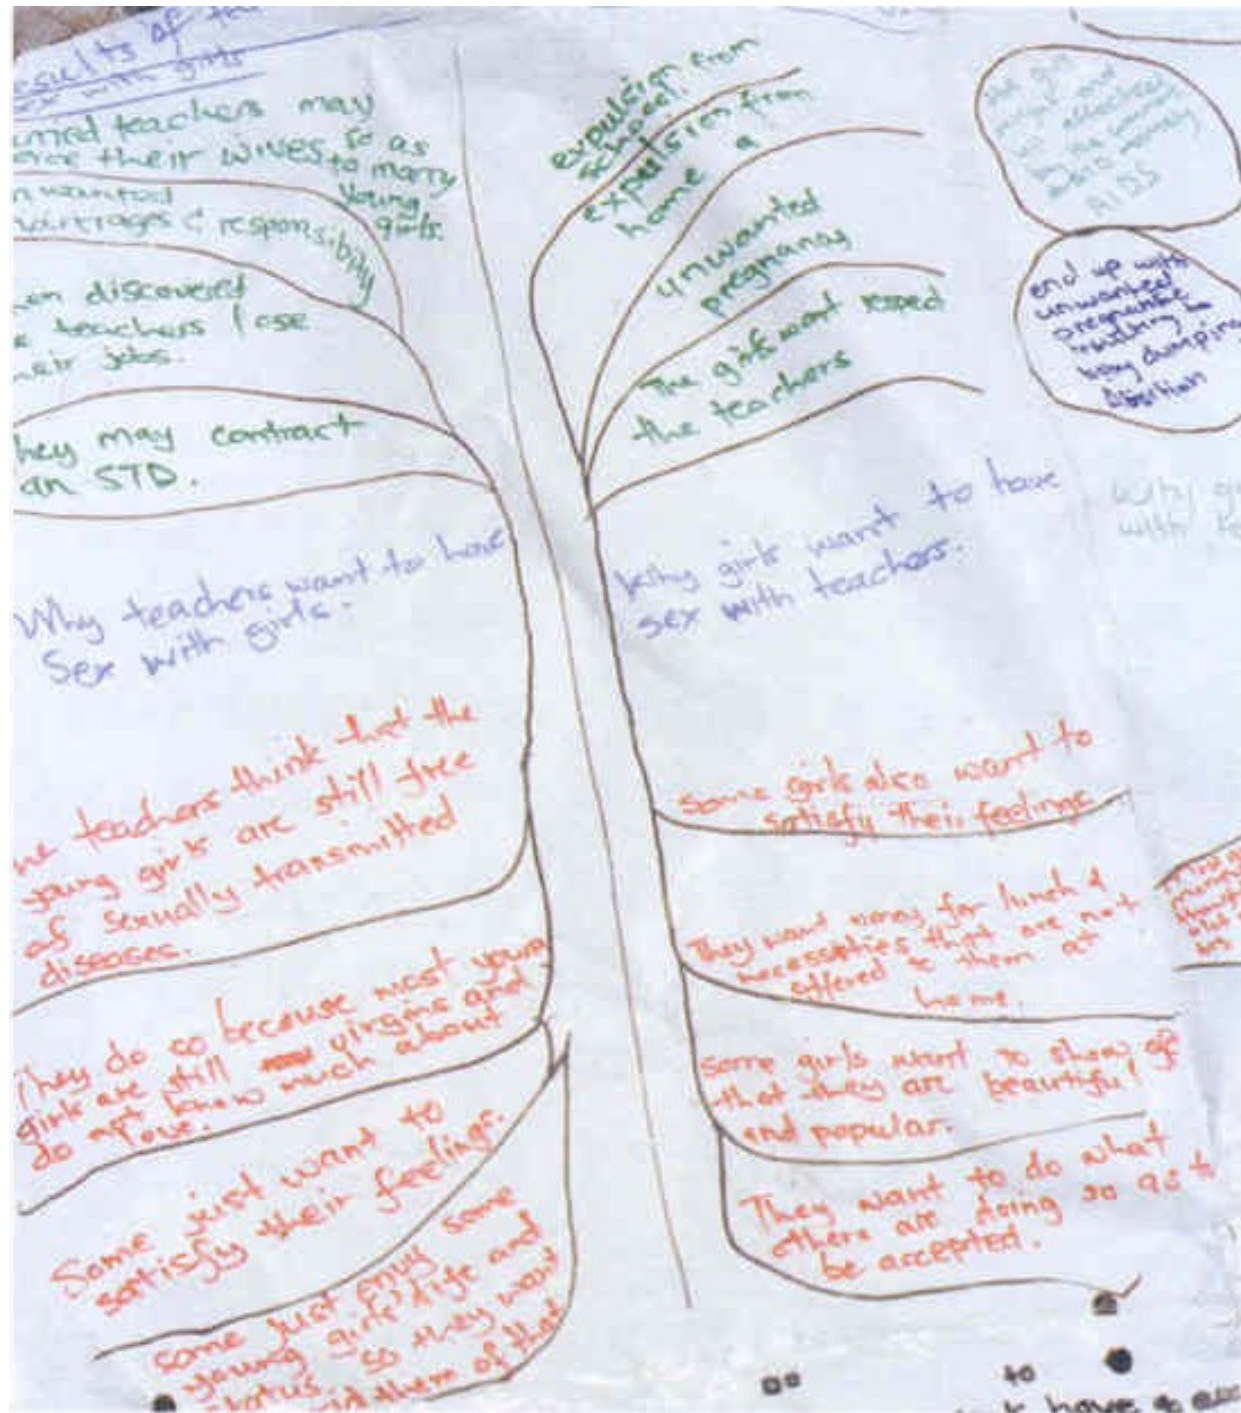 Results of
sex with girls
teachers may
their WIVES so as
to marry
young
girls.
unwanted
marriages & responsibility
discovered
teachers lose
their jobs.
They may contract
an STD.
Why teachers want to have
Sex with girls.
teachers think that the
young girls are still free
of sexually transmitted
diseases.
They do so because most young
girls are still virgins and
do not know much about
love.
Some just want to
satisfy their feelings.
Some just envy some
young girls' life and
status so they want
them of that
expulsion from
school.
expulsion from
home
unwanted
pregnancy
The girls want respect
the teachers
Why girls want to have
sex with teachers.
Some girls also want to
satisfy their feelings
They want money for lunch &
necessities that are not
offered to them at
home.
Some girls want to show off
that they are beautiful
and popular.
They want to do what
others are doing so as to
be accepted.
AIDS
end up with
unwanted
pregnancies
baby dumping
abortion
Why
with
to
have